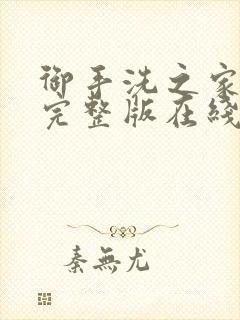 御手洗之家
完整版在綫
秦無尤